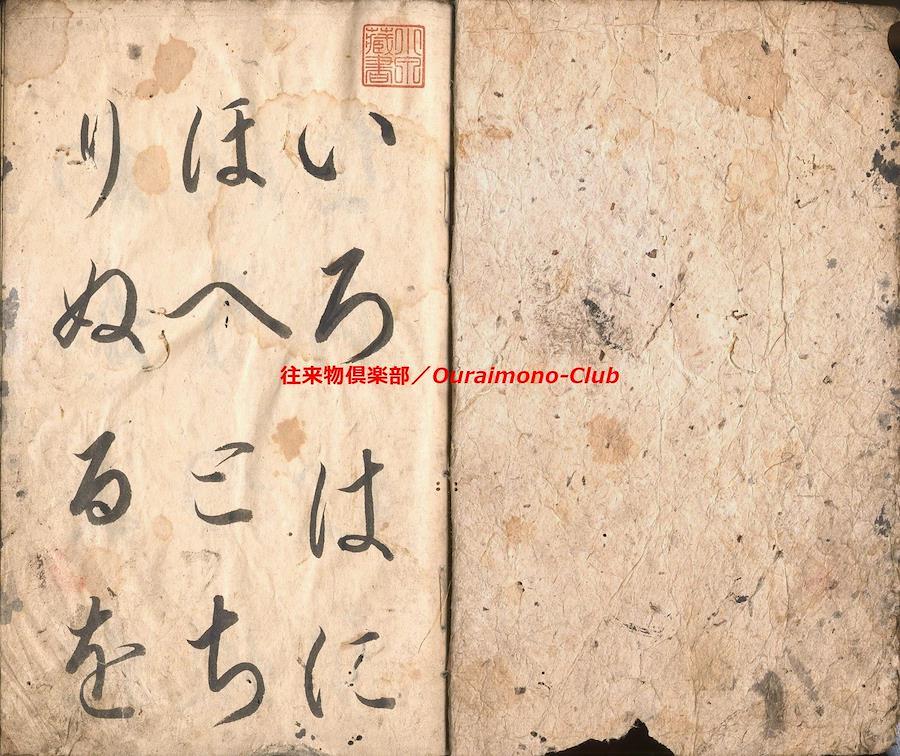 小泉藏書
いろはに
ほへとち
りぬるを
往来物倶楽部／Ouraimono-Club